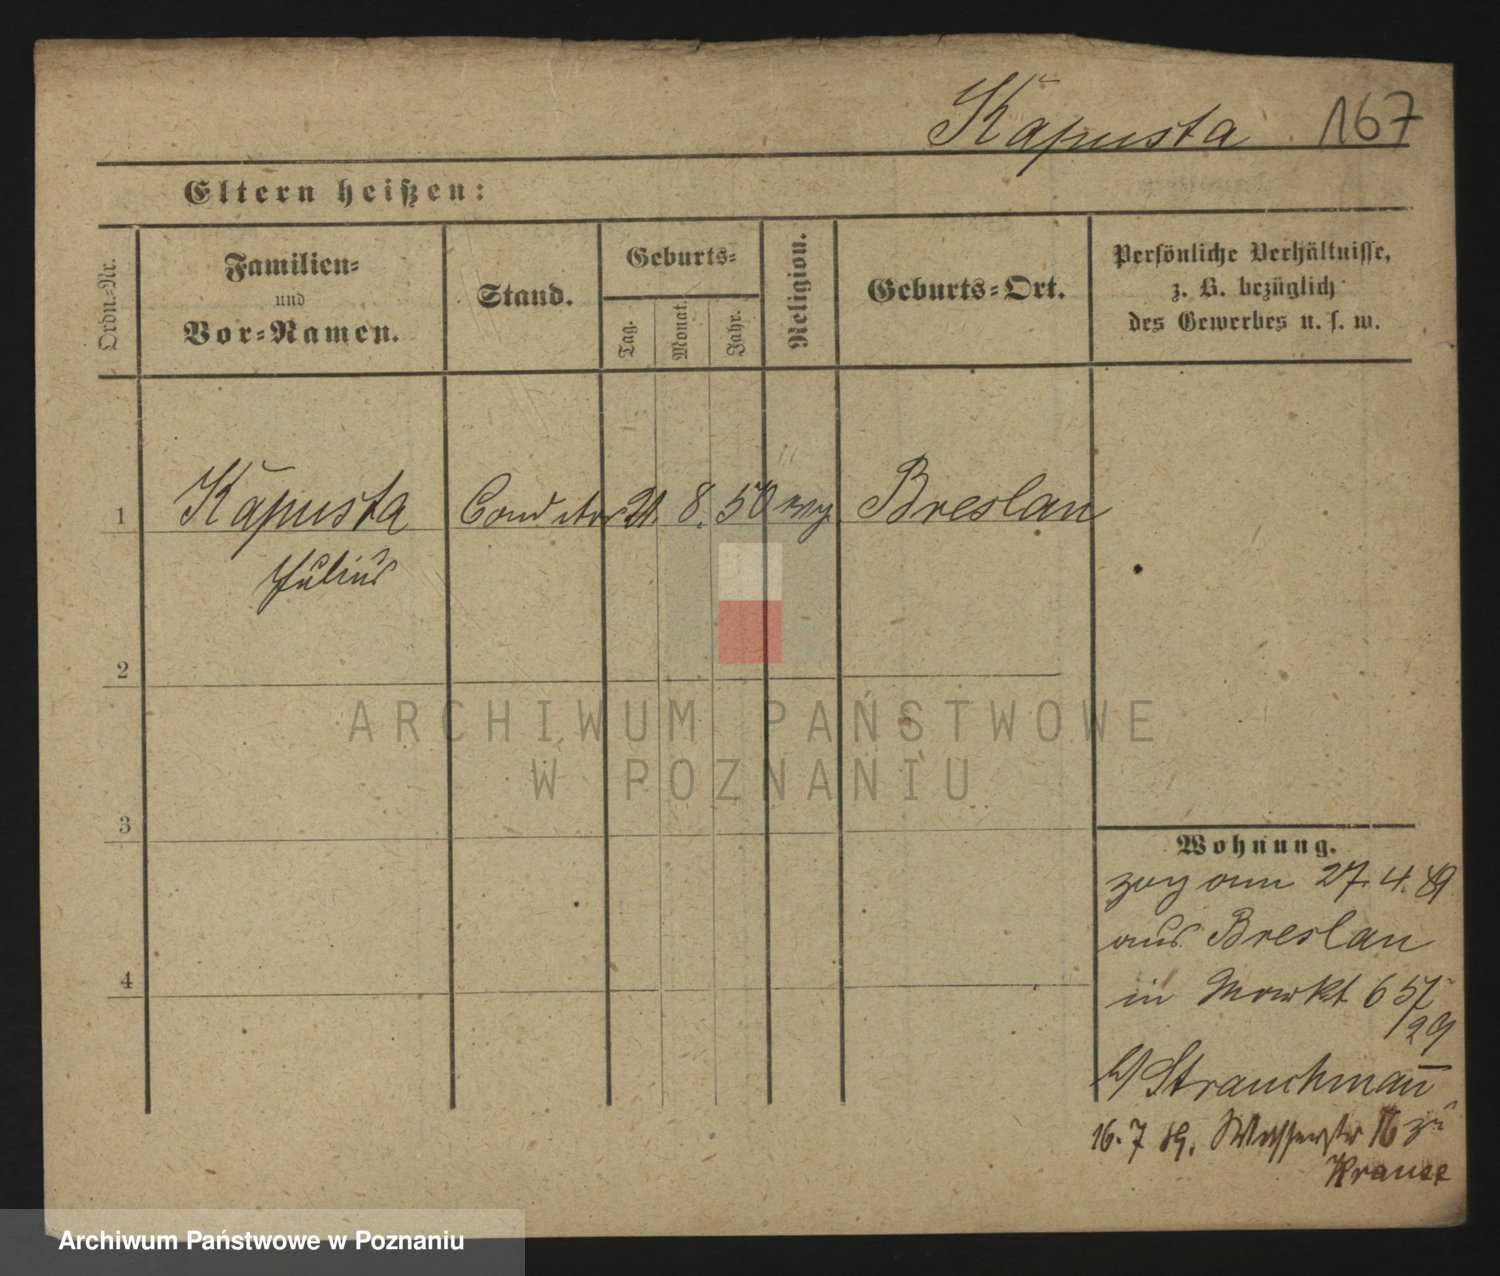 Kapusta 167
Eltern heißen:
Ordn.-Nr.
Familien-
und
Vor-Namen.
Stand.
Geburts-
Tag.
Monat.
Jahr.
Religion.
Geburts-Ort.
Persönliche Verhältnisse,
z. B. bezüglich
des Gewerbes u. s. w.
1 Kapusta Conditor 21. 8. 50 Breslau
Julius
2
ARCHIWUM PAŃSTWOWE
W POZNANIU
3
Wohnung.
zog am 27. 4. 89
aus Breslau
in Markt 6
4
Strauchmann
16. 7 89. Wasserstr 16 zu
Krause
Archiwum Państwowe w Poznaniu